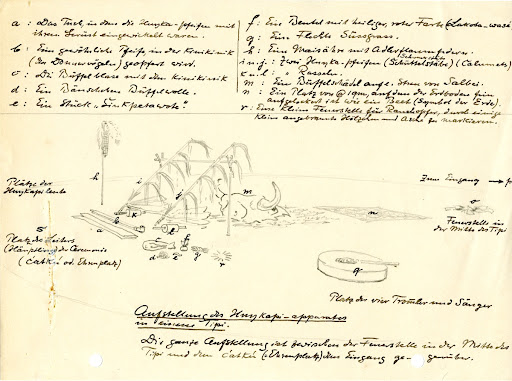 a : Das Tuch, in dem die Hunka-pfeifen mit
ihrem Gerüst eingewickelt waren.
b : Eine gewöhnliche Pfeife in der Kinikinik
(den Donnervögeln) geopfert wird.
c : Die Büffelblase mit dem Kinikinik
d : Ein Bäuschchen Büffelwolle.
e : Ein Stück „Sinkpetawote“.
f : Ein Beutel mit heiliger, roter Farbe (Lakota-wasé
g : Eine Flechte Süssgras.
h : Ein Maisähre mit Adlerflaumfedern.
i u. j : Zwei Hunka-pfeifen (Schüttelstäbe) (Calumets)
k u. l : " Rasseln.
m : Ein Büffelschädel auf e. Streu von Salbei.
n : Ein Platz von 1qm, auf dem der Erdboden fein
aufgelockert ist wie ein Beet (Symbol der Erde).
r : Eine kleine Feuerstelle für Rauchopfer, durch einige
kleine angebrannte Hölzchen und Asche zu markieren.
Plätze der
Hunkapi leute
h
i
j
m
Zum Eingang → p
o
Feuerstelle in
der Mitte des Tipi
n
b
k
a
c
l
d
e
f
g
r
s
Platz des Leiters
(Häuptling) der Ceremonie
(Catku od. Ehrenplatz)
q
Platz der vier Tromler und Sänger
Aufstellung des Hunkapi-apparates
in seinem Tipi.
Die ganze Aufstellung ist zwischen der Feuerstelle in der Mitte des
Tipi und dem Catku (=Ehrenplatz) dem Eingang ge-
genüber.